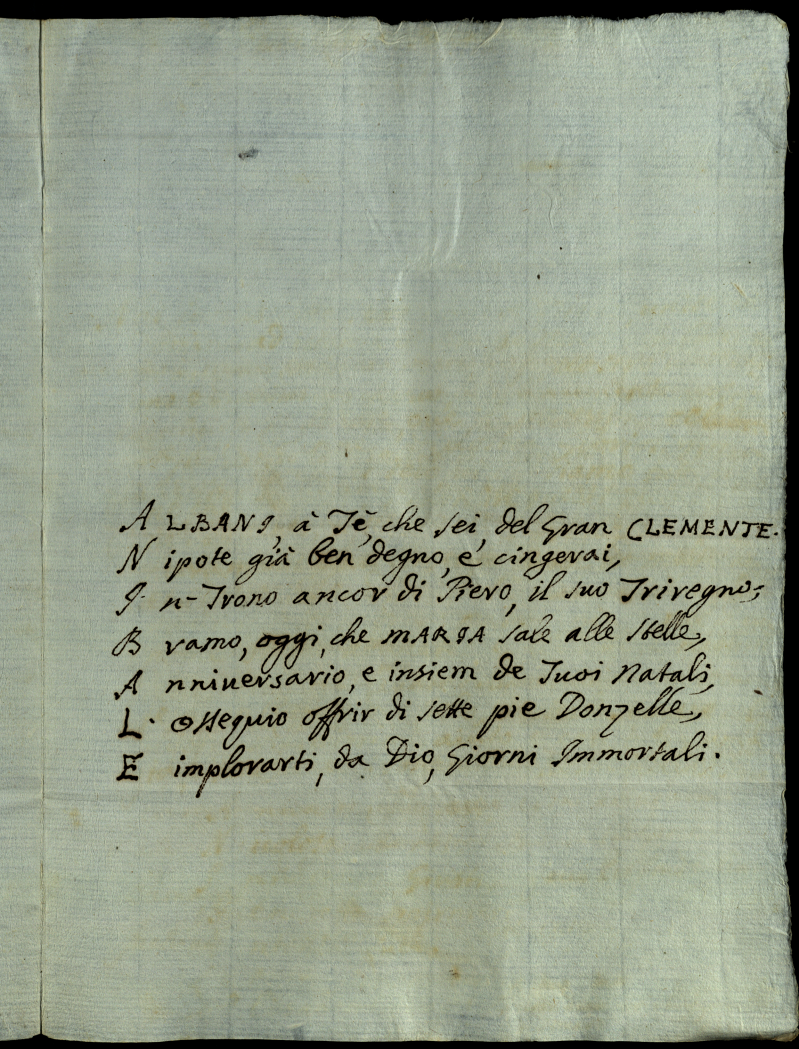 A LBANI, à Tè, che sei, del Gran CLEMENTE.
N ipote già ben degno, e cingerai,
I. n-Trono ancor di Piero, il suo Triregno;
B ramo, oggi, che MARIA sale alle stelle,
A nniversario, e insiem de Tuoi Natali,
L. ossequio offrir di sette pie Donzelle,
E implorarti, da Dio, Giorni Immortali.